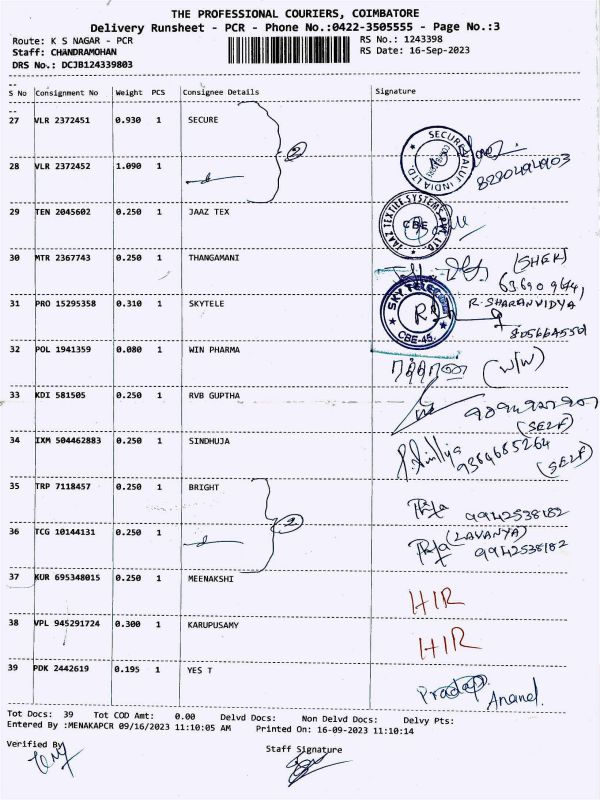 THE PROFESSIONAL COURIERS, COIMBATORE
Delivery Runsheet - PCR - Phone No.:0422-3505555 - Page No.:3
Route: K S NAGAR - PCR
RS No.: 1243398
Staff: CHANDRAMOHAN
RS Date: 16-Sep-2023
DRS No.: DCJB124339803
S No Consignment No Weight PCS Consignee Details Signature
27 VLR 2372451 0.930 1 SECURE
2
SECURE VALUE INDIA LTD.
28 VLR 2372452 1.090 1
29 TEN 2045602 0.250 1 JAAZ TEX
JAAZ TEXTILE SYSTEMS PVT. LTD.
CBE
30 MTR 2367743 0.250 1 THANGAMANI
31 PRO 15295358 0.310 1 SKYTELE
SKY TELECOM
CBE-45.
R. SHARANVIDYA
32 POL 1941359 0.080 1 WIN PHARMA
(W/W)
33 KDI 581505 0.250 1 RVB GUPTHA
(SELF)
34 IXM 504462883 0.250 1 SINDHUJA
9364685264
(SELF)
35 TRP 7118457 0.250 1 BRIGHT
9942538182
2
36 TCG 10144131 0.250 1
(LAVANYA)
9942538182
37 KUR 695348015 0.250 1 MEENAKSHI
HIR
38 VPL 945291724 0.300 1 KARUPUSAMY
HIR
39 PDK 2442619 0.195 1 YES T
Pradap Anand.
Tot Docs: 39 Tot COD Amt: 0.00 Delvd Docs: Non Delvd Docs: Delvy Pts:
Entered By :MENAKAPCR 09/16/2023 11:10:05 AM Printed On: 16-09-2023 11:10:14
Verified By
Staff Signature